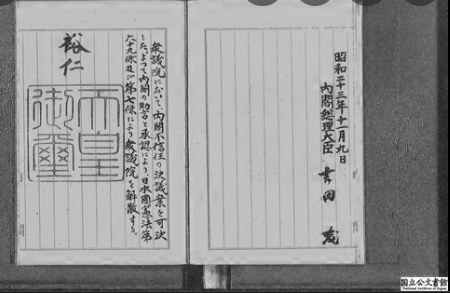 昭和二十三年十一月九日
内閣總理大臣 吉田 茂
衆議院において、内閣不信任の決議案を可決
した。よつて内閣の助言と承認により、日本國憲法第
六十九條及び第七條により、衆議院を解散する。
裕仁
天皇
御璽
国立公文書館
National Archives of Japan